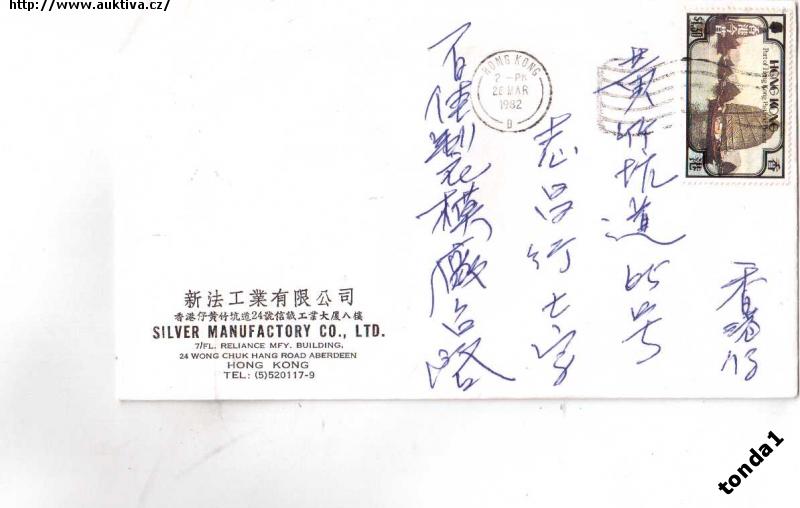 http://www.auktiva.cz/
HONG KONG
2 -PM
26 MAR
1982
D
$1.30
HONG KONG
香港
香港仔
黃竹坑道
號
志昌行七字
百佳製模廠台啓
新法工業有限公司
香港仔黃竹坑道24號信誠工業大廈八樓
SILVER MANUFACTORY CO., LTD.
7/FL. RELIANCE MFY. BUILDING,
24 WONG CHUK HANG ROAD ABERDEEN
HONG KONG
TEL: (5)520117-9
tonda1